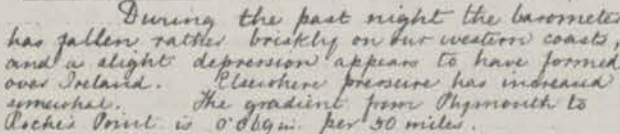 During the past night the barometer
has fallen rather briskly on our western coasts,
and a slight depression appears to have formed
over Ireland. Elsewhere pressure has increased
somewhat. The gradient from Plymouth to
Roche's Point is 0.069in. per 50 miles.